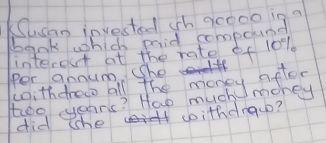 Susan invested sh 90000 in a
bank which paid compound
interest at the rate of 10%
per annum, She
withdrew all the money after
two years? How much money
did she withdraw?